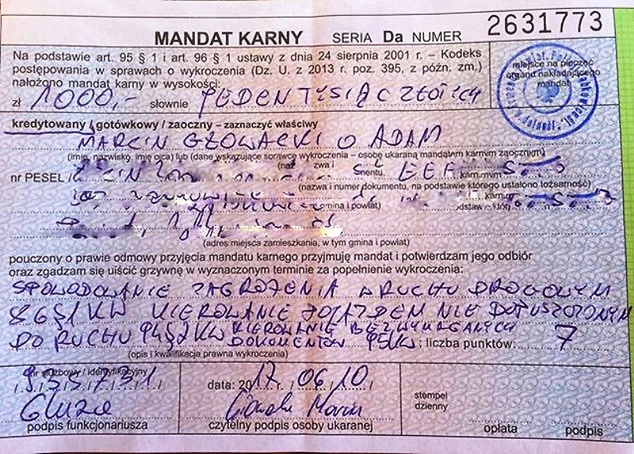 MANDAT KARNY SERIA Da NUMER 2631773
Na podstawie art. 95 § 1 i art. 96 § 1 ustawy z dnia 24 sierpnia 2001 r. – Kodeks
postępowania w sprawach o wykroczenia (Dz. U. z 2013 r. poz. 395, z późn. zm.)
nałożono mandat karny w wysokości:
miejsce na pieczęć
organu nakładającego
mandat
zł 1000,- słownie JEDEN TYSIĄC ZŁOTYCH
kredytowany / gotówkowy / zaoczny – zaznaczyć właściwy
MARCIN GŁOWACKI O ADAM
(imię, nazwisko, imię ojca) lub (dane wskazujące sprawcę wykroczenia – osobę ukaraną mandatem karnym zaocznym)
nr PESEL
(nazwa i numer dokumentu, na podstawie którego ustalono tożsamość)
gmina i powiat)
(adres miejsca zamieszkania, w tym gmina i powiat)
pouczony o prawie odmowy przyjęcia mandatu karnego przyjmuję mandat i potwierdzam jego odbiór
oraz zgadzam się uiścić grzywnę w wyznaczonym terminie za popełnienie wykroczenia:
SPOWODOWANIE ZAGROŻENIA W RUCHU DROGOWYM
86§1KW KIEROWANIE POJAZDEM NIE DOPUSZCZONYM
DO RUCHU 94§2KW KIEROWANIE BEZ WYMAGANYCH
DOKUMENTÓW 95KW : liczba punktów: 7
(opis i kwalifikacja prawna wykroczenia)
nr służbowy / identyfikacyjny
data: 2017/06/10
stempel
dzienny
podpis funkcjonariusza
czytelny podpis osoby ukaranej
opłata podpis